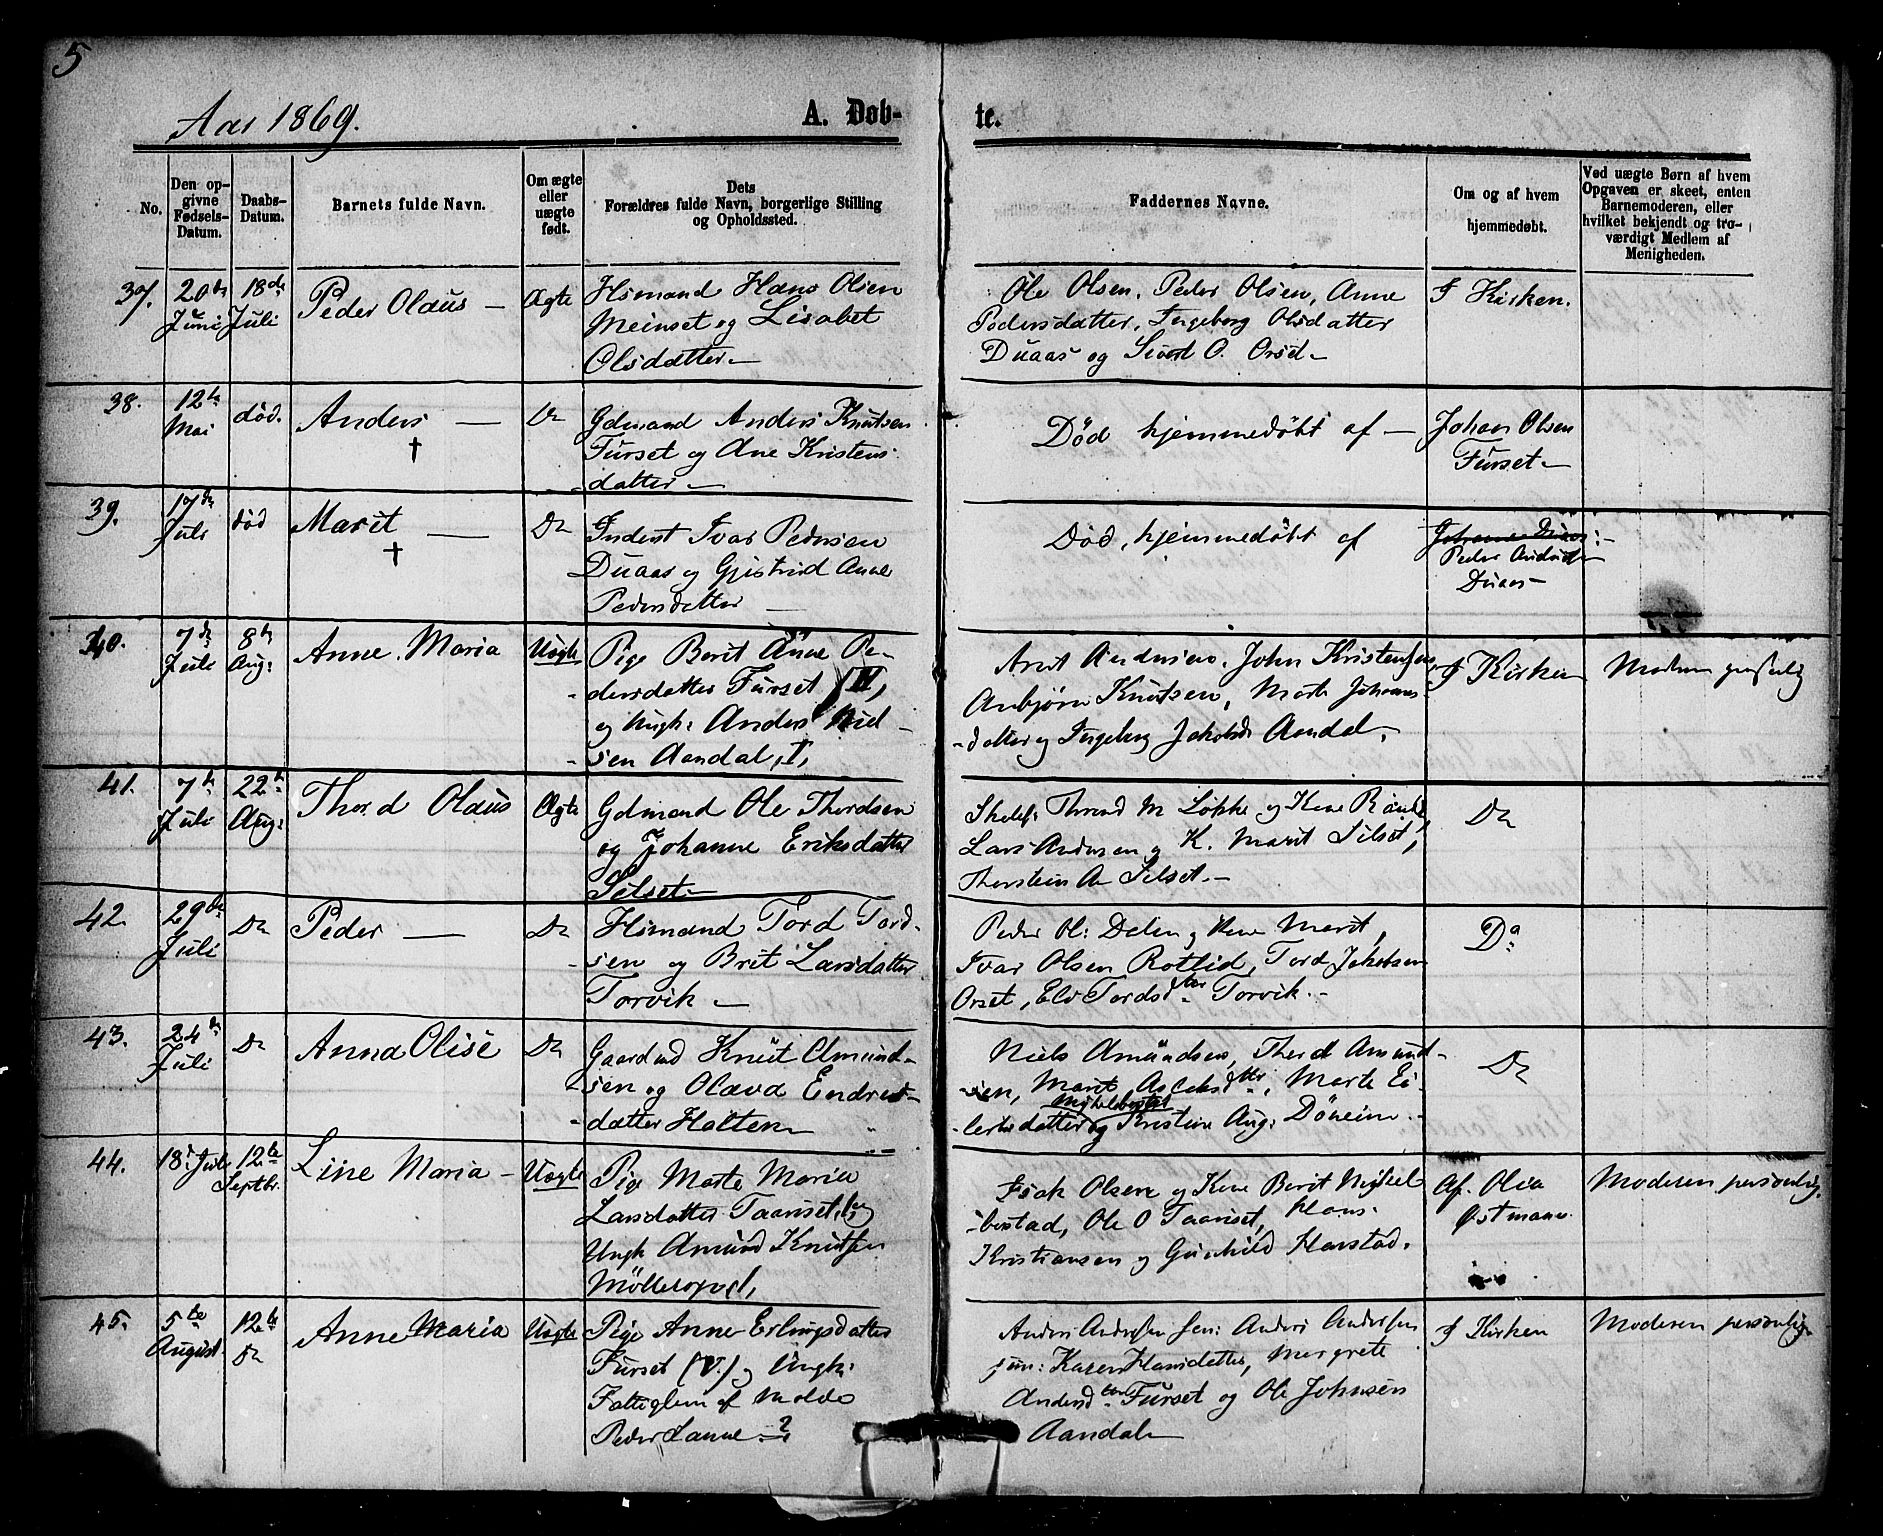 5
Aar 1869.
A. Døb-
te.
No.
Den op-
givne
Fødsels-
Datum.
Daabs-
Datum.
Barnets fulde Navn.
Om ægte
eller
uægte
født.
Dets
Forældres fulde Navn, borgerlige Stilling
og Opholdssted.
Faddernes Navne.
Om og af hvem
hjemmedøbt.
Ved uægte Børn af hvem
Opgaven er skeet, enten
Barnemoderen, eller
hvilket bekjendt og tro-
værdigt Medlem af
Menigheden.
37.
20de
Juni
18de
Juli
Peder Olaus —
Ægte
Hsmand Hans Olsen
Meinset og Lisabet
Olsdatter —
Ole Olsen, Peder Olsen, Anne
Pedersdatter, Ingeborg Olsdatter
Duaas og Sivert O. Orset —
I Kirken.
38.
12te
Mai
død.
Anders —
†
Do
Gdmand Anders Knutsen
Furset og Ane Kristens-
datter —
Død hjemmedøbt af —
Johan Olsen
Furset —
39.
17de
Juli
død
Marit —
†
Do
Inderst Ivar Pedersen
Duaas og Gjertrud Anne
Pedersdatter —
Død, hjemmedøbt af
Peder
Duaas —
40.
7de
Juli
8de
Aug:
Anne Maria
Uægte
Pige Berit Anne Pe-
dersdatter Furset (II)
og Ungk: Anders Niel-
sen Aandal, I,
Arnt Andersen, John Kristensen
Anbjørn Knutsen, Marte Johans-
datter og Ingeborg Jakobsd Aandal.
I Kirken
Moderen
41.
7de
Juli
22de
Aug:
Thord Olaus
Ægte
Gdmand Ole Thordsen
og Johanne Eriksdatter
Silset —
Thrond M Løkke og Kone
Lars Andersen og K. Marit Silset,
Thorstein A Silset. —
Do
42.
29de
Juli
Do
Peder —
Do
Hsmand Tord Tord-
sen og Brit Larsdatter
Torvik —
Peder Ol: Dalen og Kone Marit,
Ivar Olsen Rotlid, Tord Jakobsen
Orset, Eli Tordsdtter Torvik. —
Do
43.
24de
Juli
Do
Anna Olise
Do
Gaardmd Knut Amund-
sen og Olava Endres-
datter Holten —
Niels Amundsen, Thord Amund-
sen, Marit Aslaksdtter, Marte Ei-
Mykelbostad
lertsdatter og Kristine Aug: Døneim —
Do
44.
18. Juli
12te
Septbr.
Line Maria —
Uægte
Pige Marte Maria
Larsdatter Taanset, og
Ungk Amund Knutsen
Isak Olsen og Kone Berit Mykel-
bostad, Ole O Taanset, Hans
Kristiansen og Gunhild Harstad.
Af Olia
Østmann.
Moderen personlig.
45.
5te
August.
12te
Do
Anne Maria
Uægte
Pige Anne Erlingsdatter
Furset (V.) og Ungk:
Fattiglem af Molde
Peder Lanne ?
Anders Andersen sen: Anders Andersen
jun: Karen Hansdatter, Margrete
Andersdtter Furset og Ole Johnsen
Aandal —
I Kirken
Moderen personlig